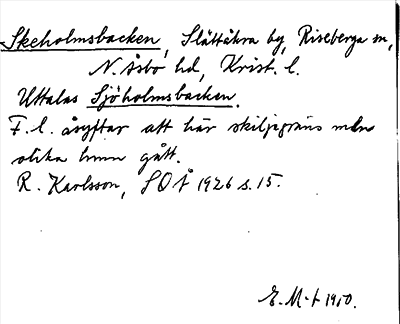 Skeholmsbacken, Slättåkra by, Riseberga sn,
N. Åsbo hd, Krist. l.
Uttalas Sjöholmsbacken.
F. l. åsyftar att här skiljegräns mln
olika hmn gått.
R. Karlsson, SOÅ 1926 s. 15.
E. M-t 1950.